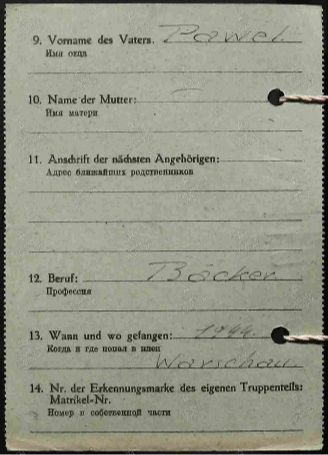 9. Vorname des Vaters. Pawel.
Имя отца
10. Name der Mutter: —
Имя матери
11. Anschrift der nächsten Angehörigen:
Адрес ближайших родственников
12. Beruf: Bäcker
Профессия
13. Wann und wo gefangen: 1944.
Когда и где попал в плен
Warschau.
14. Nr. der Erkennungsmarke des eigenen Truppenteils:
Matrikel-Nr.
Номер и собственной части